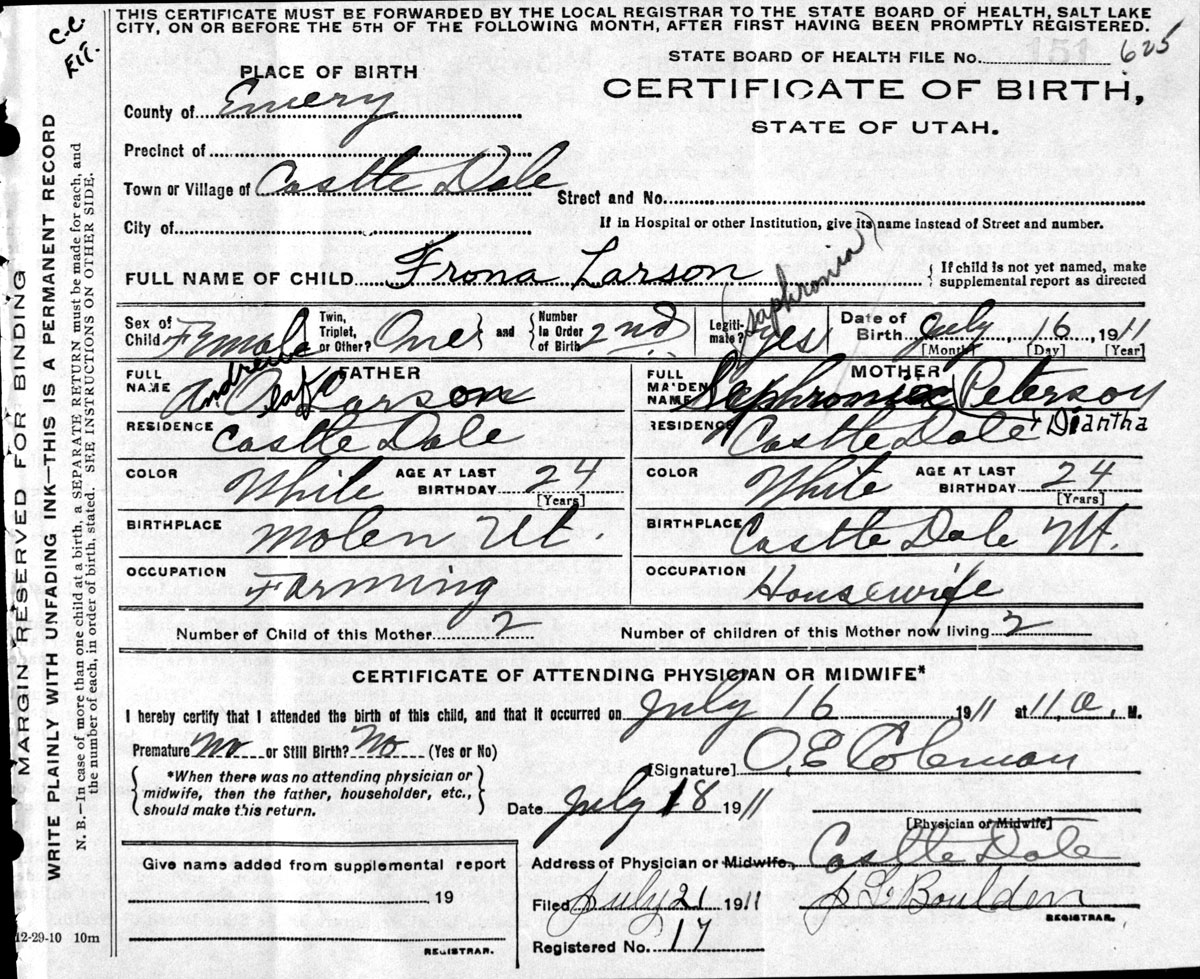 THIS CERTIFICATE MUST BE FORWARDED BY THE LOCAL REGISTRAR TO THE STATE BOARD OF HEALTH, SALT LAKE
CITY, ON OR BEFORE THE 5TH OF THE FOLLOWING MONTH, AFTER FIRST HAVING BEEN PROMPTLY REGISTERED.
STATE BOARD OF HEALTH FILE No. 625
PLACE OF BIRTH
CERTIFICATE OF BIRTH,
STATE OF UTAH.
County of Emery
Precinct of
Town or Village of Castle Dale
Street and No.
City of
If in Hospital or other Institution, give its name instead of Street and number.
FULL NAME OF CHILD Frona Larson
(Saphronia)
{ If child is not yet named, make
supplemental report as directed
Sex of Child Female
Twin, Triplet, or Other? One } and { Number In Order of Birth 2nd
Legitimate? Yes
Date of Birth July 16 1911
[Month] [Day] [Year]
FATHER
FULL NAME Andrew Olaf Larson
RESIDENCE Castle Dale
COLOR White AGE AT LAST BIRTHDAY 24
[Years]
BIRTHPLACE Molen Ut.
OCCUPATION Farming
MOTHER
FULL MAIDEN NAME Sephronia Peterson
Diantha
RESIDENCE Castle Dale
COLOR White AGE AT LAST BIRTHDAY 24
[Years]
BIRTHPLACE Castle Dale Ut.
OCCUPATION Housewife
Number of Child of this Mother 2 Number of children of this Mother now living 2
CERTIFICATE OF ATTENDING PHYSICIAN OR MIDWIFE*
I hereby certify that I attended the birth of this child, and that it occurred on July 16 1911 at 11, a. M.
Premature No or Still Birth? No (Yes or No)
[Signature] O, E Coleman
{ *When there was no attending physician or
midwife, then the father, householder, etc.,
should make this return. }
Date July 18 1911
[Physician or Midwife]
Address of Physician or Midwife, Castle Dale
Give name added from supplemental report
19
REGISTRAR.
Filed July 21 1911 Boulden
REGISTRAR.
Registered No. 17
12-29-10 10m
MARGIN RESERVED FOR BINDING
WRITE PLAINLY WITH UNFADING INK—THIS IS A PERMANENT RECORD
N. B.—In case of more than one child at a birth, a SEPARATE RETURN must be made for each, and
the number of each, in order of birth, stated. SEE INSTRUCTIONS ON OTHER SIDE.